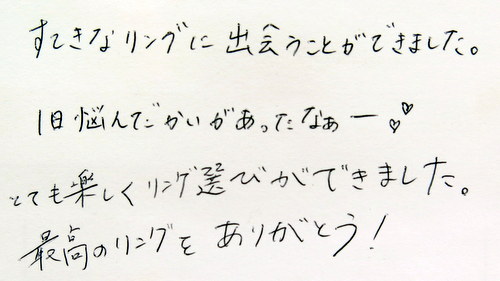 すてきなリングに出会うことができました。
1日悩んだかいがあったなぁー♡♡
とても楽しくリング選びができました。
最高のリングをありがとう!